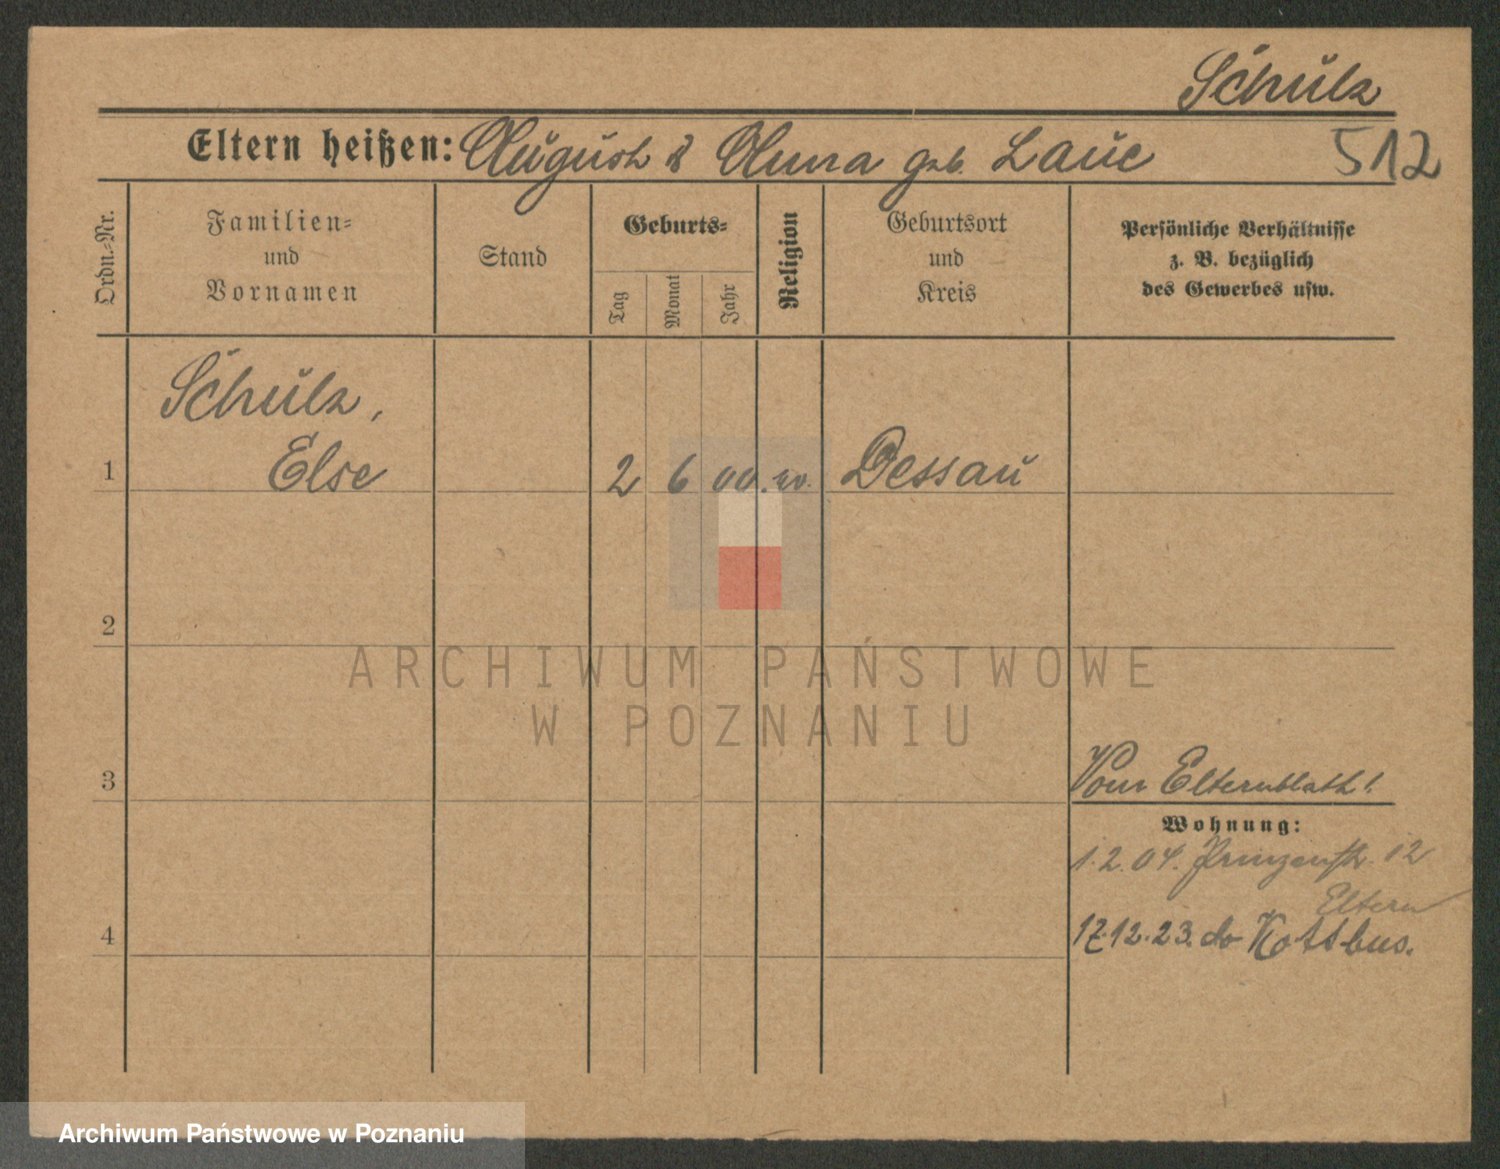 Schulz
Eltern heißen: August & Anna geb. Laue 512
Ordn.-Nr.
Familien-
und
Vornamen
Stand
Geburts-
Tag
Monat
Jahr
Religion
Geburtsort
und
Kreis
Persönliche Verhältnisse
z. B. bezüglich
des Gewerbes usw.
Schulz,
1 Else 2 6 00. ev. Dessau
2
ARCHIWUM PAŃSTWOWE
W POZNANIU
3 Vom Elternblatt!
Wohnung:
1.2.04. Prinzenstr. 12
Eltern
4 17.12.23. do Kottbus.
Archiwum Państwowe w Poznaniu